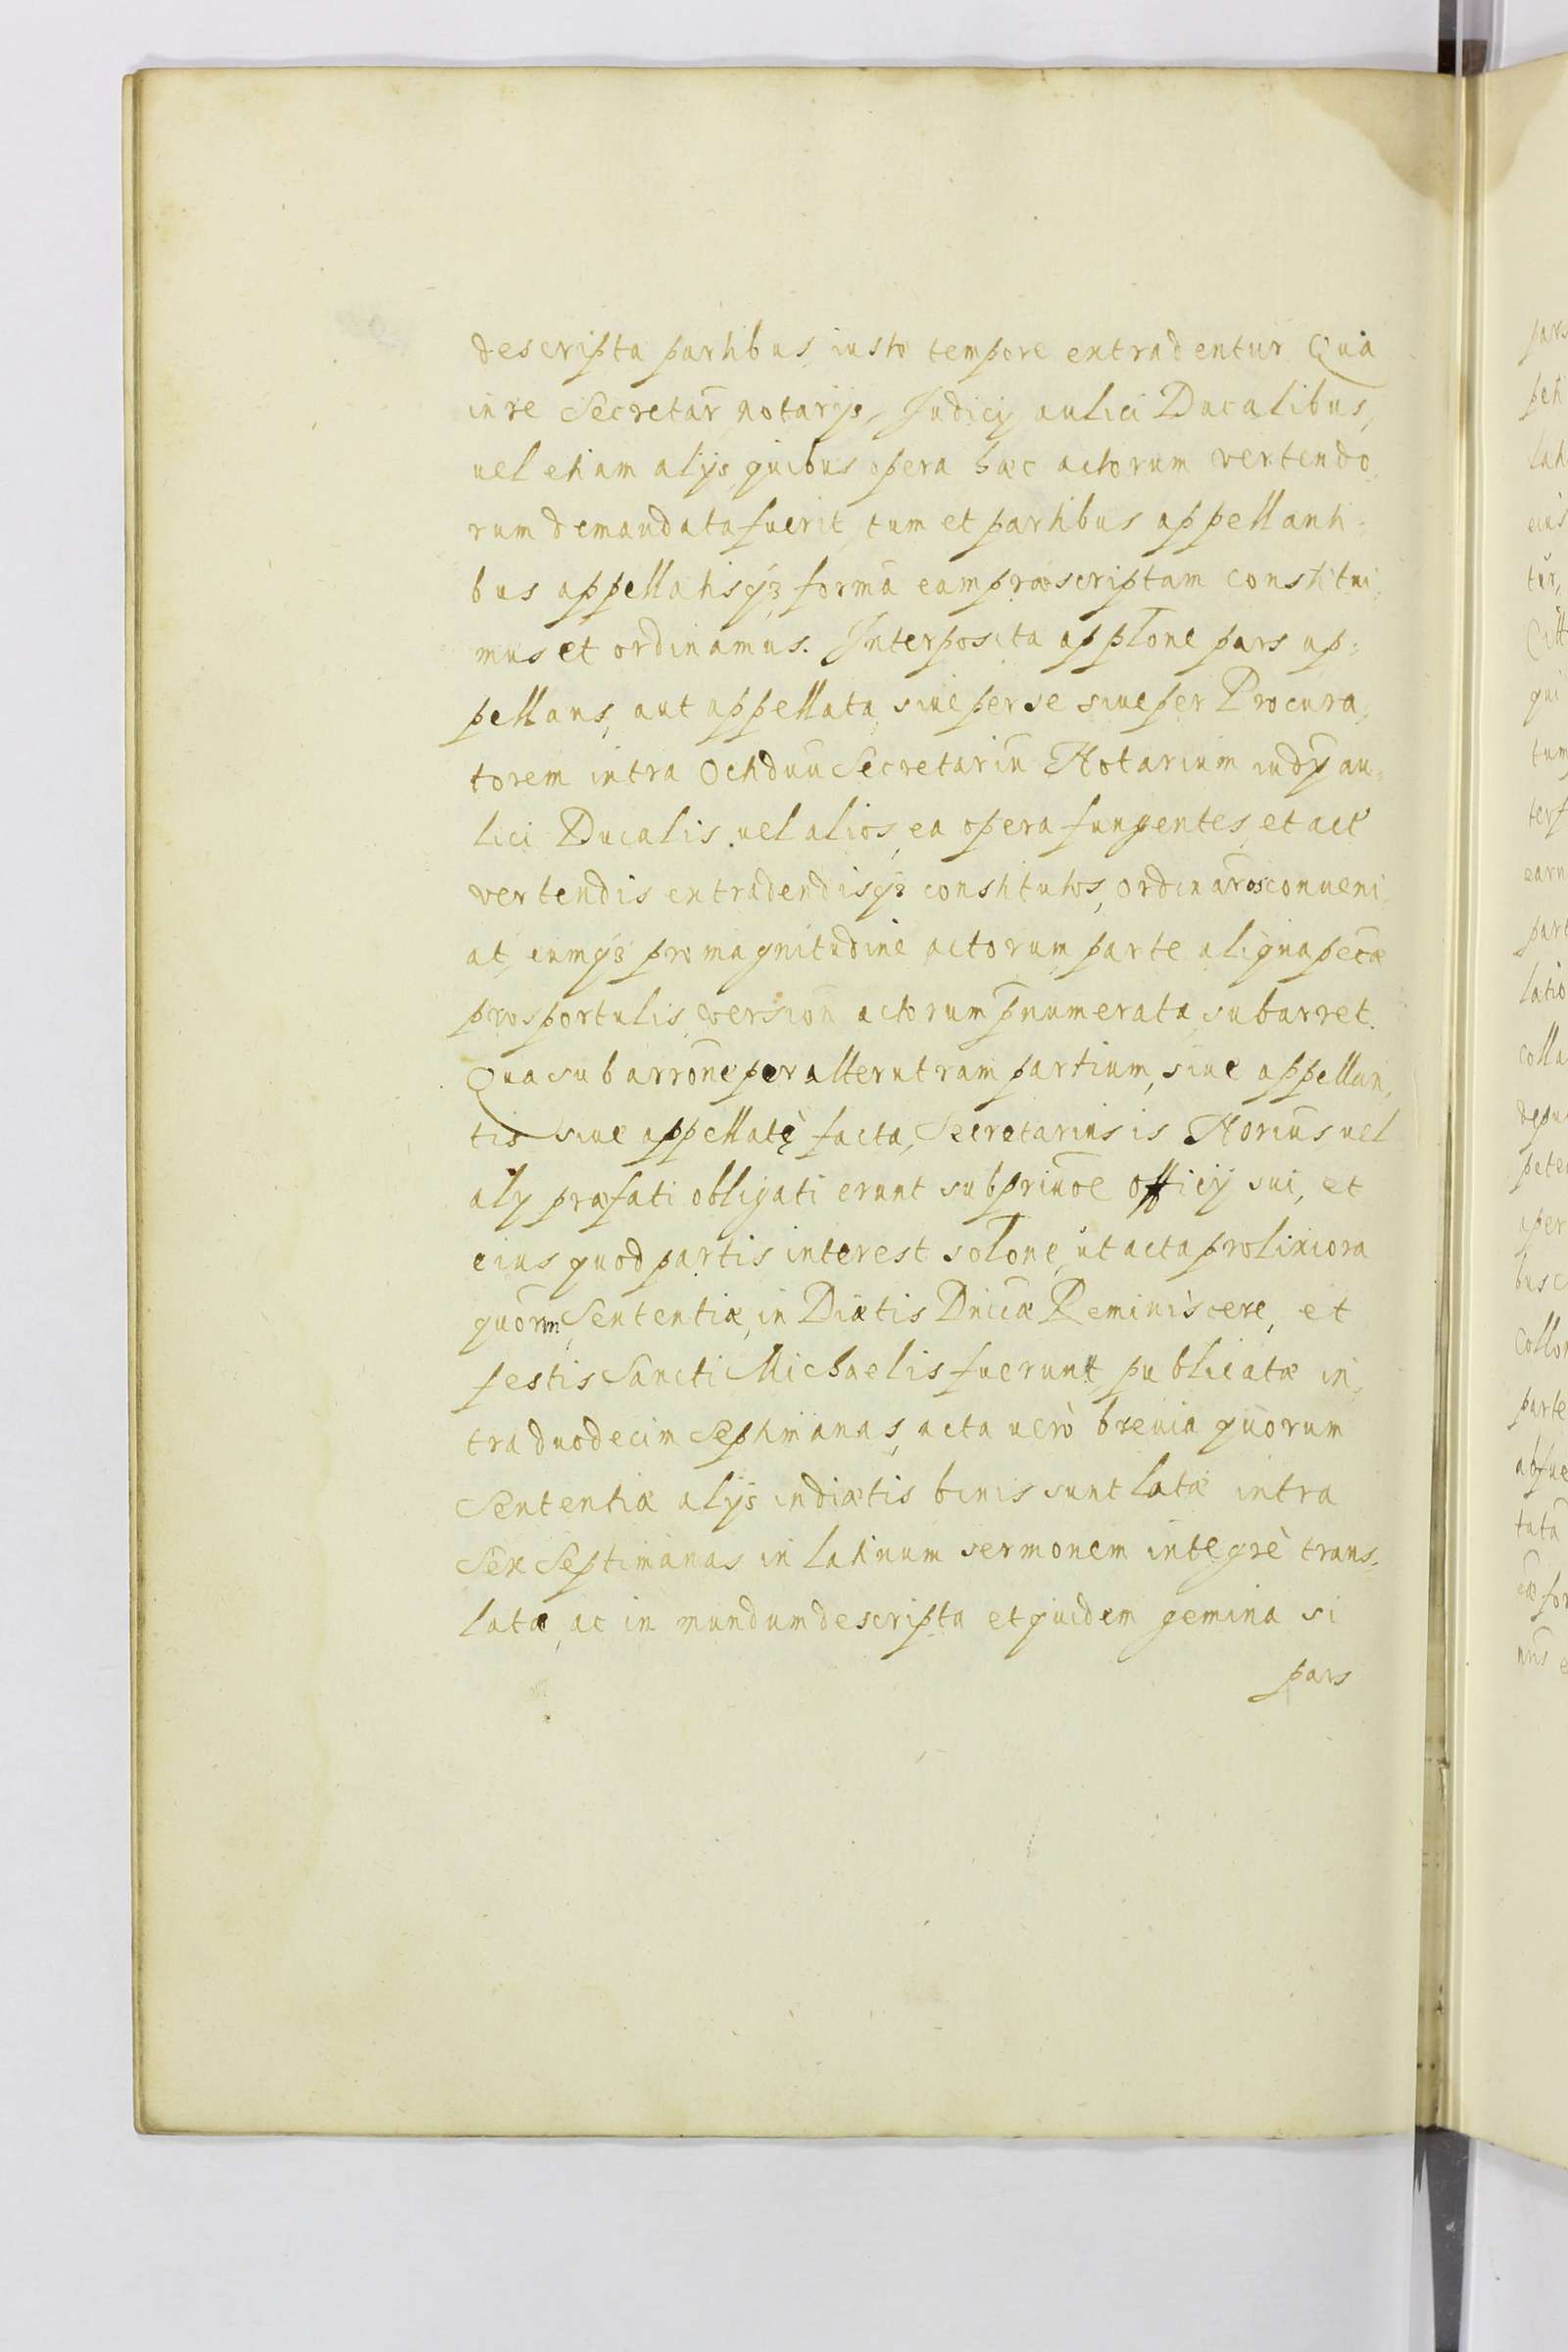 descripta partibus iusto tempore extradentur Qua
in re Secretar̄ notarijs, Judicij aulici Ducalibus,
uel etiam alijs quibus opera hæc actorum vertendo
rum demandata fuerit, tum et partibus appellanti:
bus appellatisqꝫ formā eam præscriptam constitui:
mus et ordinamus. Interposita appl̄one pars ap:
pellans, aut appellata siue per se siue per Procura,
torem intra Octiduū Secretariū Notarium iudȳ au:
lici Ducalis uel alios, ea opera fungentes, et act'
vertendis extradendisqꝫ constitutos, ordinar̄os conueni,
at, eumqꝫ pro magnitudine actorum parte aliqua pec̄æ
pro sportulis version̄ actorum p̄numerata subarret.
Qua subarrōne per alterutram partium, siue appellan,
tis siue appellatę facta, Secretarius is Norius̄ uel
alij præfati obligati erunt sub priuōe officij sui, et
eius quod partis interest sol̄one, ut acta prolixiora
quorum Sententiæ, in Diætis Dnicæ Reminiscere, et
festis Sancti Michaelis fuerunt publicatæ in,
tra duodecim Septimanas, acta uerò breuia quorum
Sententiæ alijs in diætis binis sunt latæ intra
Sex Septimanas in latinum sermonem integrè trans,
lata, ac in mundum descripta et quidem gemina si
pars